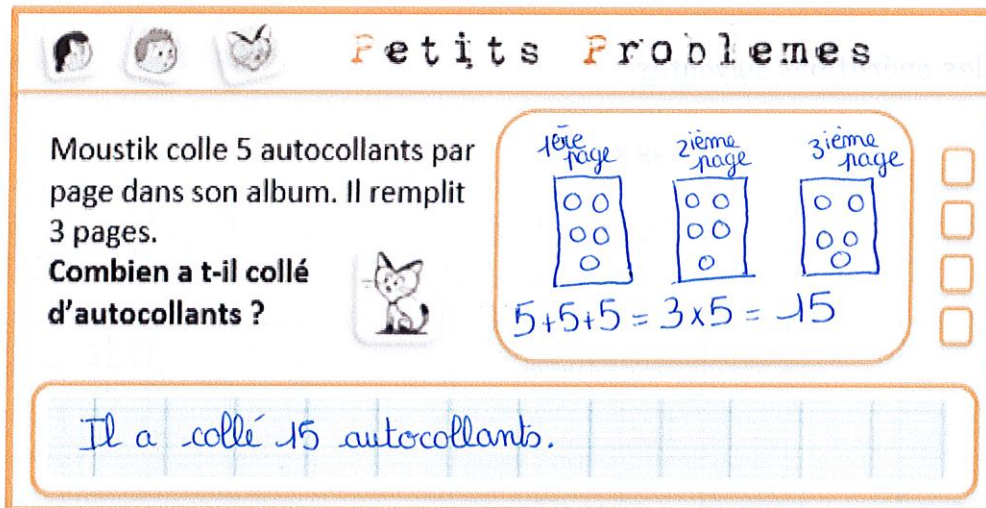 Petits Problemes
Moustik colle 5 autocollants par
page dans son album. Il remplit
3 pages.
Combien a t-il collé
d'autocollants ?
1ère page
2ième page
3ième page
5+5+5 = 3x5 = 15
Il a collé 15 autocollants.